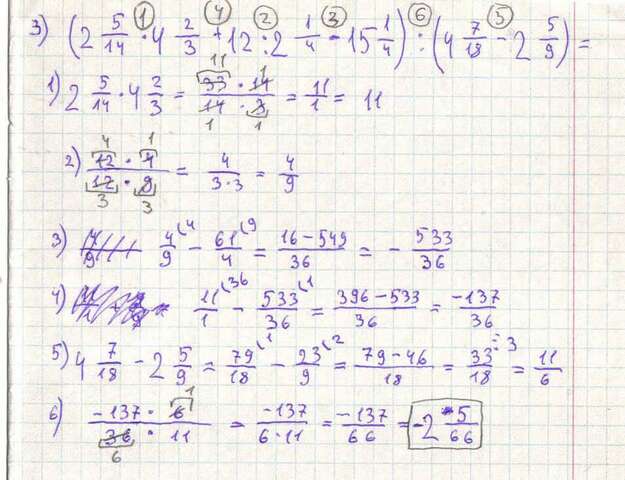 3) (2 5/14 · 4 2/3 + 12 : 2 1/4 - 15 1/4) : (4 7/18 - 2 5/9) =
1) 2 5/14 · 4 2/3 = 33 · 14 / 14 · 3 = 11/1 = 11
2) 12 · 4 / 12 · 9 = 4 / 3·3 = 4/9
3) 4/9 - 61/4 = 16 - 549 / 36 = - 533/36
4) 11/1 - 533/36 = 396 - 533 / 36 = -137/36
5) 4 7/18 - 2 5/9 = 79/18 - 23/9 = 79 - 46 / 18 = 33/18 = 11/6
6) -137 · 6 / 36 · 11 = -137 / 6·11 = -137/66 = -2 5/66